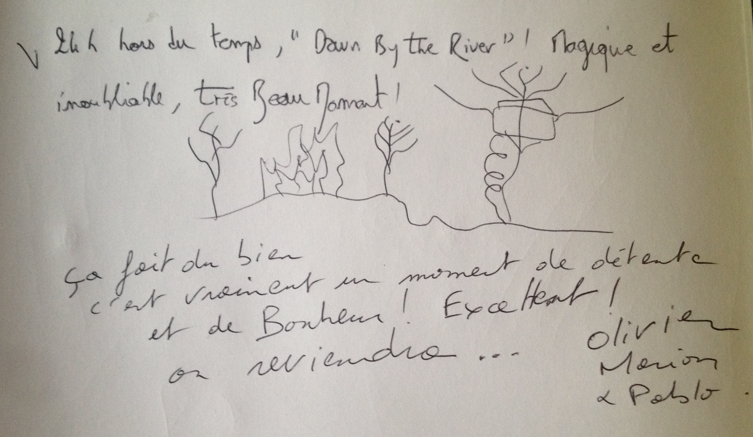 24h hors du temps, "Down By the River"! Magique et
inoubliable, très Beau Moment!
ça fait du bien
c'est vraiment un moment de détente
et de Bonheur! Excellent!
on reviendra ...
Olivier
Marion
& Pablo.